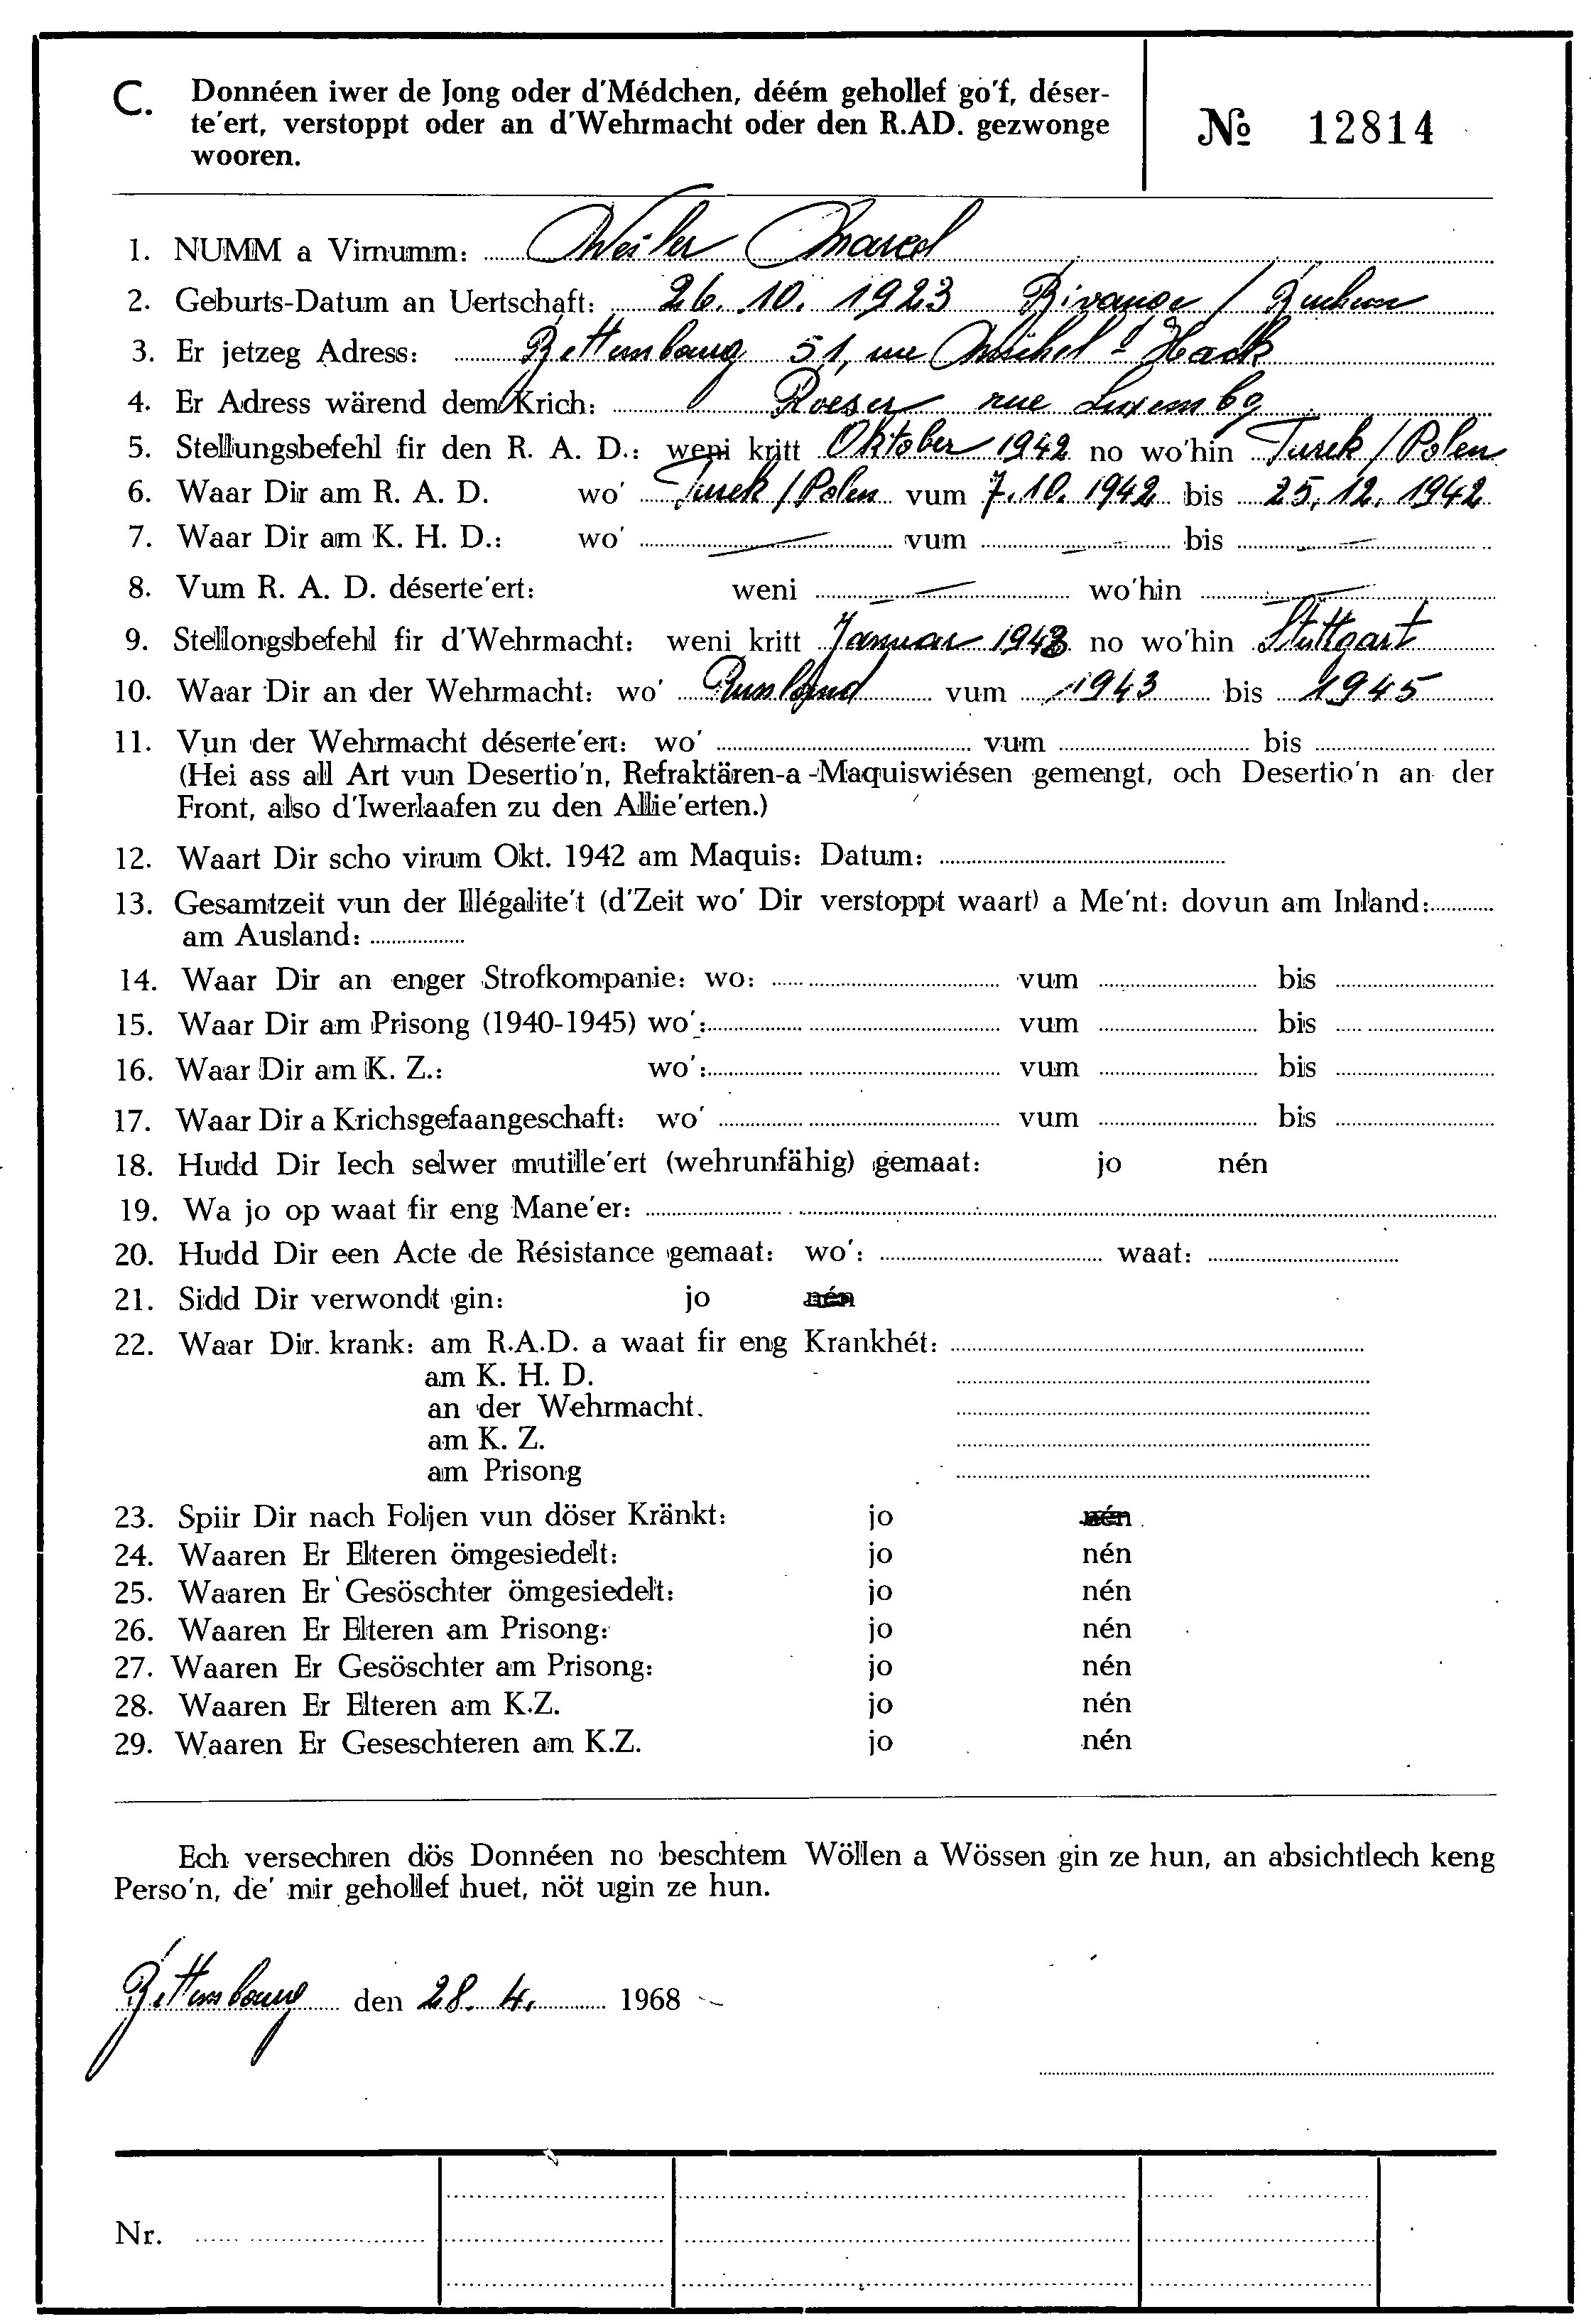 C. Donnéen iwer de Jong oder d'Médchen, déém gehollef go'f, déser-
te'ert, verstoppt oder an d'Wehrmacht oder den R.AD. gezwonge
wooren.
№ 12814
1. NUMM a Virnumm: Weiler Marcel
2. Geburts-Datum an Uertschaft: 26. 10. 1923 Bivange /
3. Er jetzeg Adress: Bettembourg 51, rue Michel Hack
4. Er Adress wärend dem Krich: Roeser rue Luxembg
5. Stellungsbefehl fir den R. A. D.: weni kritt Oktober 1942 no wo'hin Turek / Polen
6. Waar Dir am R. A. D. wo' Turek / Polen vum 7. 10. 1942 bis 25. 12. 1942
7. Waar Dir am K. H. D.: wo' — vum — bis —
8. Vum R. A. D. déserte'ert: weni — wo'hin —
9. Stellongsbefehl fir d'Wehrmacht: weni kritt Januar 1943 no wo'hin Stuttgart
10. Waar Dir an der Wehrmacht: wo' Russland vum 1943 bis 1945
11. Vun der Wehrmacht déserte'ert: wo' vum bis
(Hei ass all Art vun Desertio'n, Refraktären-a-Maquiswiésen gemengt, och Desertio'n an der
Front, also d'Iwerlaafen zu den Allie'erten.)
12. Waart Dir scho virum Okt. 1942 am Maquis: Datum:
13. Gesamtzeit vun der Illégalite't (d'Zeit wo' Dir verstoppt waart) a Me'nt: dovun am Inland:
am Ausland:
14. Waar Dir an enger Strofkompanie: wo: vum bis
15. Waar Dir am Prisong (1940-1945) wo': vum bis
16. Waar Dir am K. Z.: wo': vum bis
17. Waar Dir a Krichsgefaangeschaft: wo' vum bis
18. Hudd Dir Iech selwer mutille'ert (wehrunfähig) gemaat: jo nén
19. Wa jo op waat fir eng Mane'er:
20. Hudd Dir een Acte de Résistance gemaat: wo': waat:
21. Sidd Dir verwondt gin: jo nén
22. Waar Dir krank: am R.A.D. a waat fir eng Krankhét:
am K. H. D.
an der Wehrmacht.
am K. Z.
am Prisong
23. Spiir Dir nach Foljen vun döser Kränkt: jo nén
24. Waaren Er Elteren ömgesiedelt: jo nén
25. Waaren Er Gesöschter ömgesiedelt: jo nén
26. Waaren Er Elteren am Prisong: jo nén
27. Waaren Er Gesöschter am Prisong: jo nén
28. Waaren Er Elteren am K.Z. jo nén
29. Waaren Er Geseschteren am K.Z. jo nén
Ech versechren dös Donnéen no beschtem Wöllen a Wössen gin ze hun, an absichtlech keng
Perso'n, de' mir gehollef huet, nöt ugin ze hun.
Bettembourg den 28. 4. 1968
Nr.